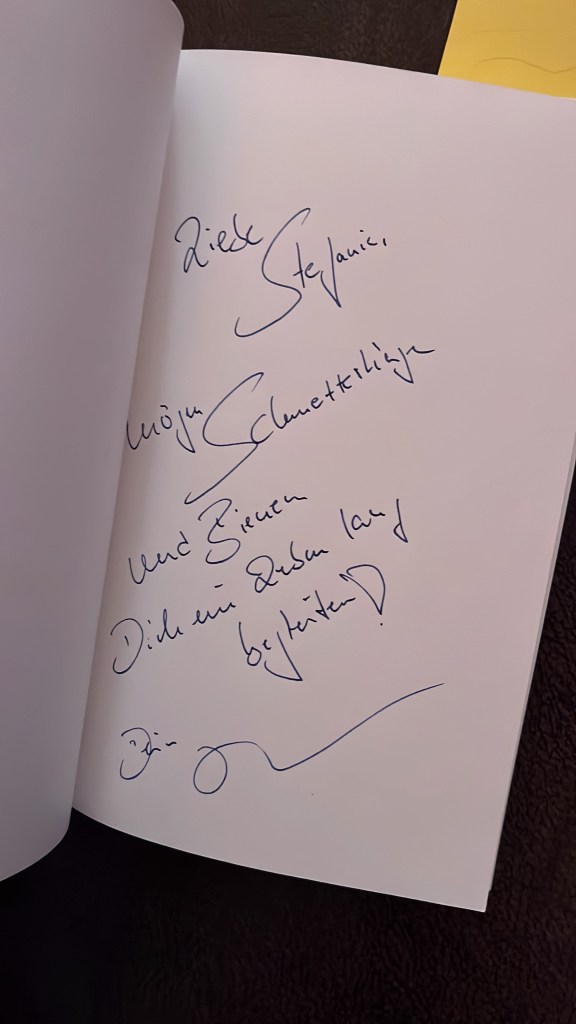 Liebe
Stefanie,
mögen Schmetterlinge
und Bienen
Dich ein Leben lang
begleiten!
Dein